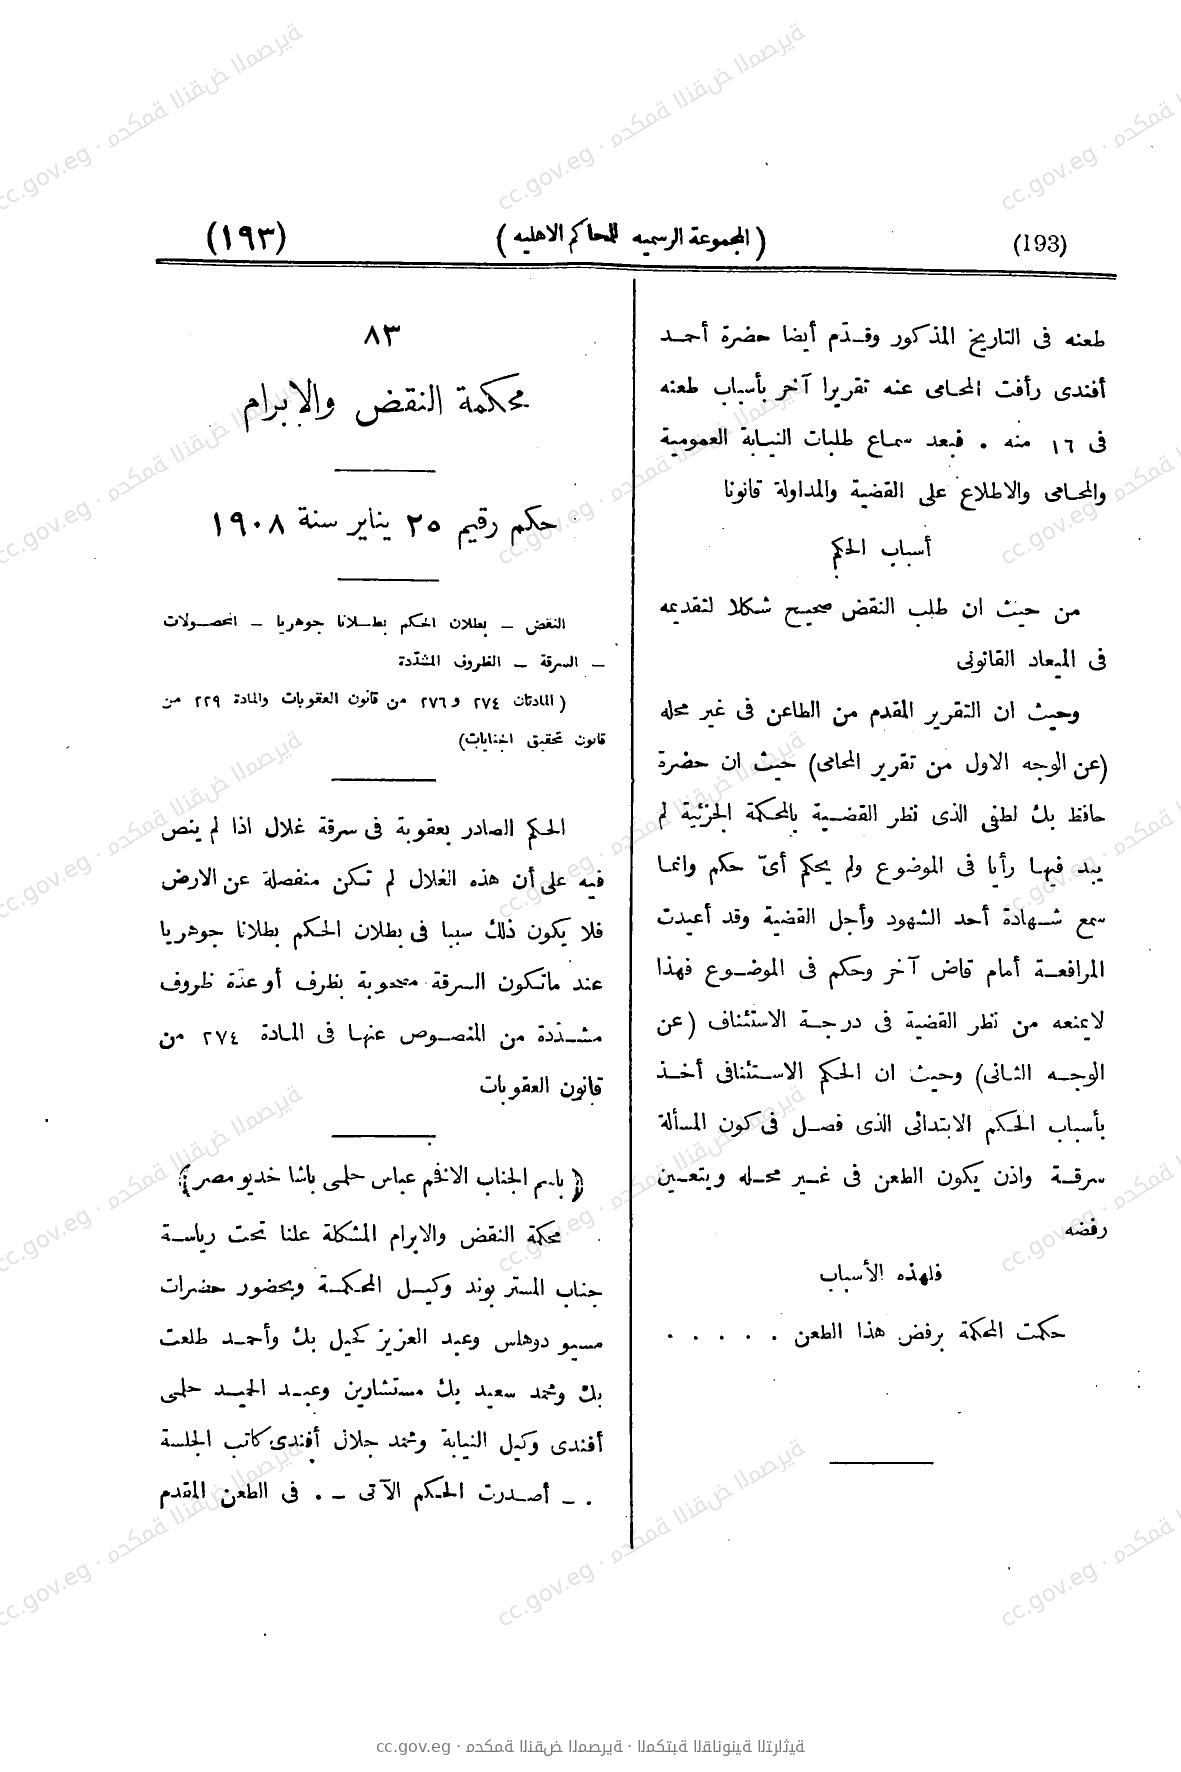 (193)
(المجموعة الرسميه للمحاكم الاهليه)
(١٩٣)
طعنه فى التاريخ المذكور وقدّم أيضا حضرة أحمد
أفندى رأفت المحامى عنه تقريرا آخر بأسباب طعنه
فى ١٦ منه . فبعد سماع طلبات النيابة العمومية
والمحامى والاطلاع على القضية والمداولة قانونا
أسباب الحكم
من حيث ان طلب النقض صحيح شكلا لتقديمه
فى الميعاد القانونى
وحيث ان التقرير المقدم من الطاعن فى غير محله
(عن الوجه الاول من تقرير المحامى) حيث ان حضرة
حافظ بك لطفى الذى نظر القضية بالمحكمة الجزئية لم
يبد فيها رأيا فى الموضوع ولم يحكم أىّ حكم وانما
سمع شهادة أحد الشهود وأجل القضية وقد أعيدت
المرافعة أمام قاض آخر وحكم فى الموضوع فهذا
لايمنعه من نظر القضية فى درجة الاستئناف (عن
الوجه الثانى) وحيث ان الحكم الاستئنافى أخذ
بأسباب الحكم الابتدائى الذى فصل فى كون المسألة
سرقة واذن يكون الطعن فى غير محله ويتعين
رفضه
فلهذه الأسباب
حكمت المحكمة برفض هذا الطعن . . . . .
٨٣
محكمة النقض والإبرام
حكم رقيم ٢٥ يناير سنة ١٩٠٨
النقض – بطلان الحكم بطلانا جوهريا – المحصولات
– السرقة – الظروف المشدّدة
(المادتان ٢٧٤ و ٢٧٦ من قانون العقوبات والمادة ٢٢٩ من
قانون تحقيق الجنايات)
الحكم الصادر بعقوبة فى سرقة غلال اذا لم ينص
فيه على أن هذه الغلال لم تكن منفصلة عن الارض
فلا يكون ذلك سببا فى بطلان الحكم بطلانا جوهريا
عند ماتكون السرقة مصحوبة بظرف أو عدّة ظروف
مشدّدة من المنصوص عنها فى المادة ٢٧٤ من
قانون العقوبات
(باسم الجناب الافخم عباس حلمى باشا خديو مصر)
محكمة النقض والابرام المشكلة علنا تحت رياسة
جناب المستر بوند وكيل المحكمة وبحضور حضرات
مسيو دوهلس وعبد العزيز كحيل بك وأحمد طلعت
بك ومحمد سعيد بك مستشارين وعبد الحميد حلمى
أفندى وكيل النيابة ومحمد جلال أفندى كاتب الجلسة
. – أصدرت الحكم الآتى – . فى الطعن المقدم
cc.gov.eg · محكمة النقض المصرية · المكتبة القانونية التراثية